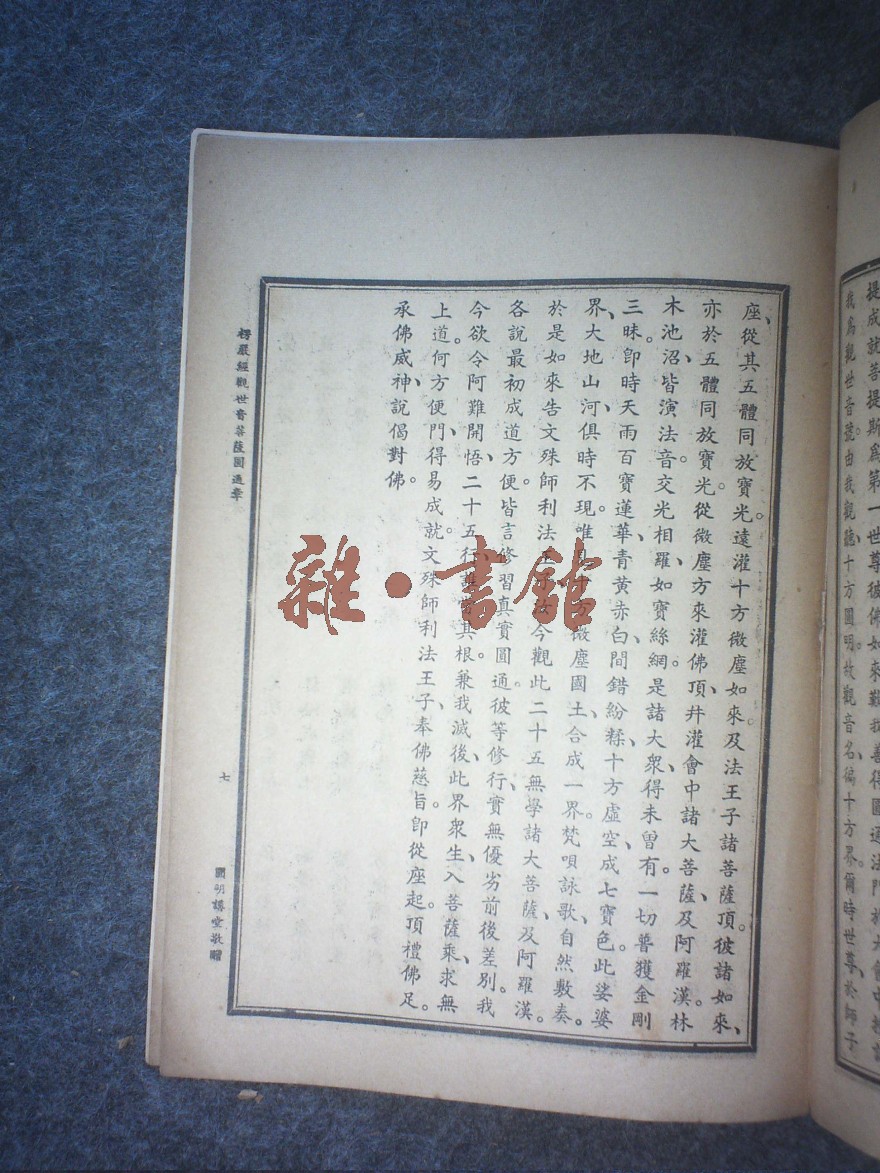 提成就菩提斯爲第一世尊彼佛如來歎我善得圓通法門於大會中授記
我爲觀世音號。由我觀聽、十方圓明。故觀音名、徧十方界。爾時世尊、於師子
座、從其五體同放寶光。遠灌十方微塵如來。及法王子諸菩薩頂。彼諸如來、
亦於五體同放寶光。從微塵方來灌佛頂、幷灌會中諸大菩薩、及阿羅漢。林
木池沼、皆演法音。交光相羅、如寶絲網。是諸大衆、得未曾有。一切普獲金剛
三昧。卽時天雨百寶蓮華、青黃赤白、間錯紛糅。十方虛空、成七寶色。此娑婆
界、大地山河、俱時不現。唯見十方微塵國土、合成一界。梵唄詠歌、自然敷奏。
於是如來告文殊師利法王子、汝今觀此二十五無學諸大菩薩、及阿羅漢。
各說最初成道方便。皆言修習真實圓通。彼等修行、實無優劣前後差別。我
今欲令阿難開悟、二十五行、誰當其根。兼我滅後、此界衆生、入菩薩乘、求無
上道。何方便門、得易成就。文殊師利法王子、奉佛慈旨。卽從座起、頂禮佛足。
承佛威神、說偈對佛。
楞嚴經觀世音菩薩圓通章
七
圓明講堂敬贈
雜·書館